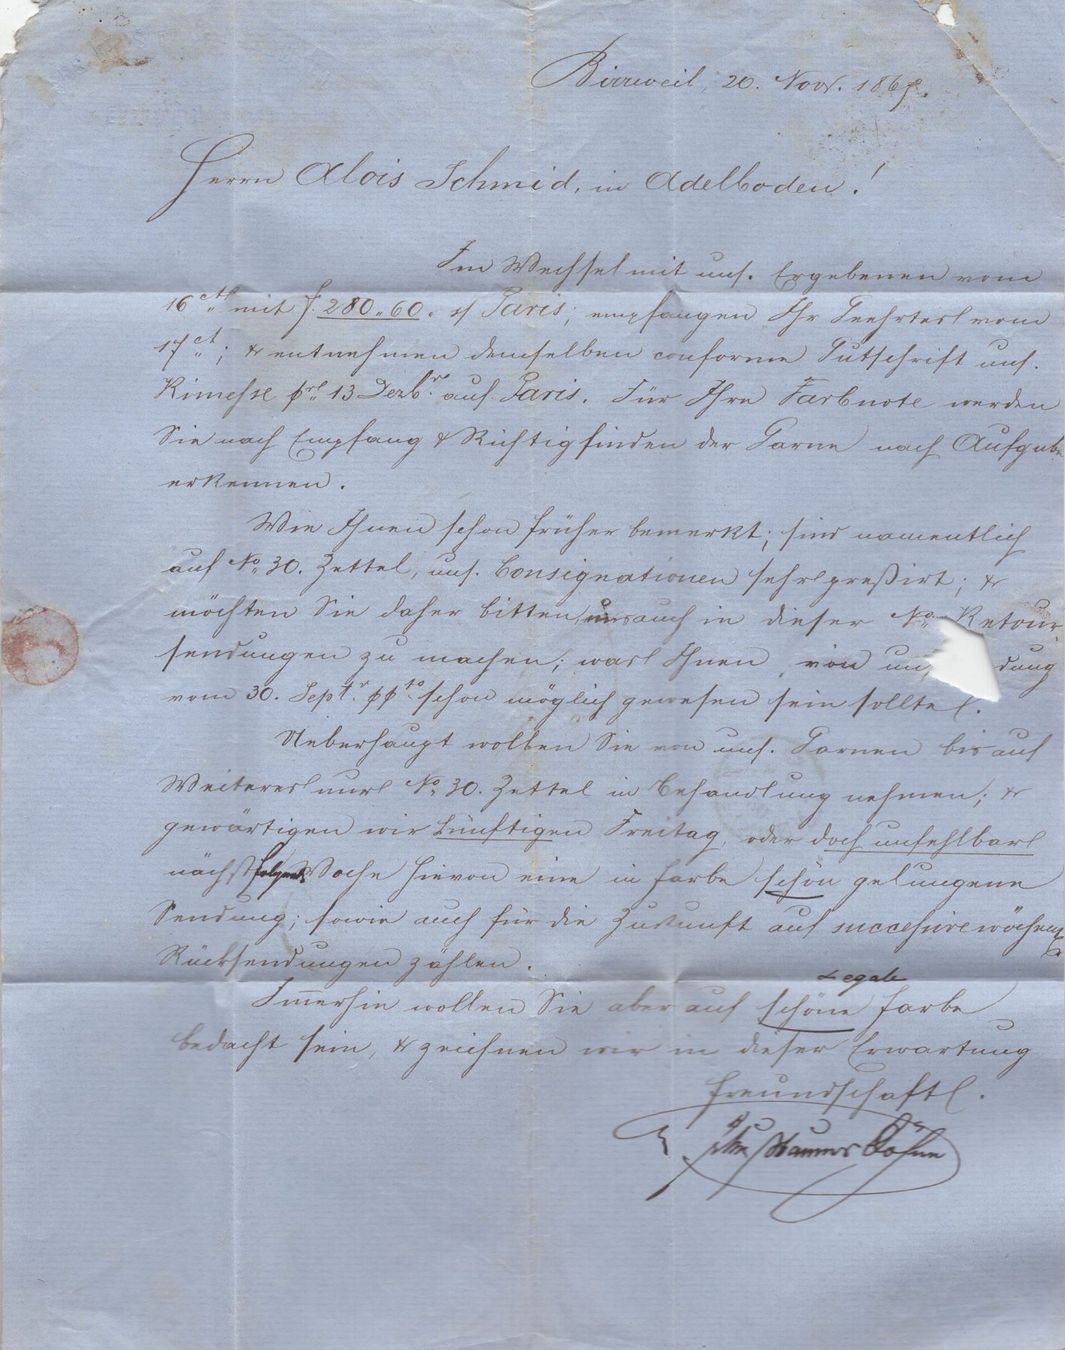 Birrweil, 20. Nov. 186
Herrn Alois Schmid, in Adelboden!
Im Wechsel mit uns. Ergebenen vom
16 ct. mit f. 280.60. s/ Paris; empfangen Ihr Geehrtes vom
17 ct.; & entnehmen demselben conforme Gutschrift uns.
Rimesse pr. 13 Dezbr. auf Paris. Für Ihre Farbnote werden
Sie nach Empfang & Richtigfinden der Garne nach Aufgabe
erkennen.
Wie Ihnen schon früher bemerkt; sind namentlich
auf No. 30. Zettel, uns. Consignationen sehr pressirt; &
möchten Sie daher bitten, uns auch in dieser No. Retour-
sendungen zu machen; was Ihnen von un dung
vom 30. Sept. ppto. schon möglich gewesen sein sollte.
Ueberhaupt wollen Sie von uns. Garnen bis auf
Weiteres nur No. 30. Zettel in Behandlung nehmen; &
gewärtigen wir künftigen Freitag, oder doch unfehlbar
nächstfolgende Woche hievon eine in Farbe schön gelungene
Sendung; sowie auch für die Zukunft auf successive wöchentl.
Rücksendungen zählen.
Immerhin wollen Sie aber auf schöne & egale Farbe
bedacht sein, & zeichnen wir in dieser Erwartung
freundschaftl.
Söhne